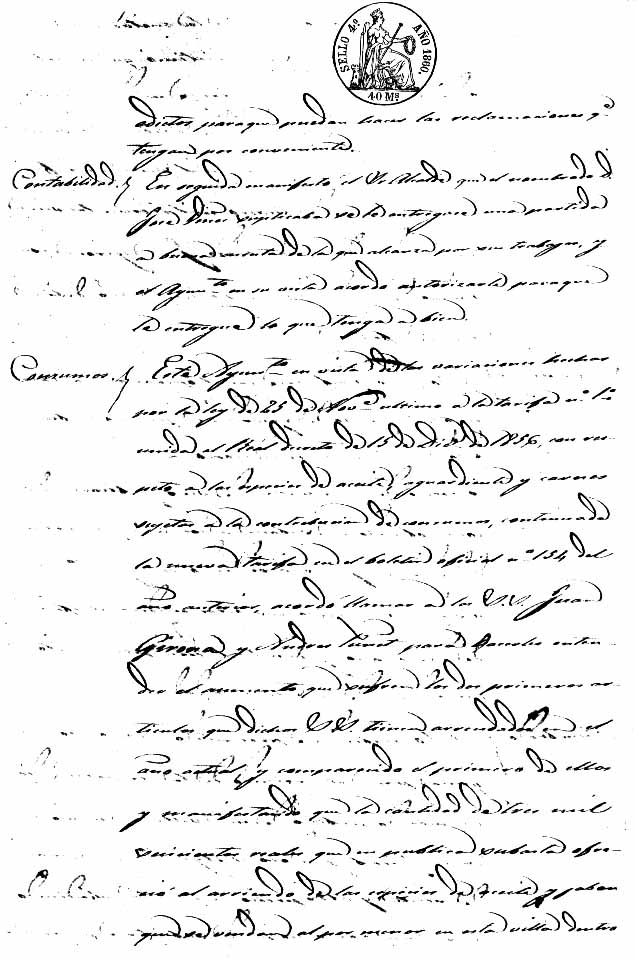 SELLO 4º AÑO 1860.
40 Ms
para que puedan hacer las reclamaciones q.e
tengan por conveniente.
Contabilidad. En seguida manifestó el Sr. Alcalde que el nombrado D.
José suplicaba se le entregase una partida
a buena cuenta de la que alcanza por sus trabajos, y
el Ayunt.to en su vista acordó autorizarle para que
le entregue lo que tenga a bien.
Consumos. Este Ayunt.to en vista de las variaciones hechas
por la ley de 25 de Nov.e ultimo a la tarifa nº 1º
unida al Real decreto de 15 de Dic.e de 1856, con res-
peto a las especies de aceite, aguardiente y carnes
sujetas a la contribucion de consumos, continuada
la nueva tarifa en el boletin oficial nº 154 del
año anterior, acordó llamar a los S.S. Juan
Girona y Andres para hacerles enten-
der el aumento que sufren los dos primeros ar-
ticulos que dichos SS. tienen arrendados en el
año actual, y compareciendo el primero de ellos
y manifestando que la cantidad de tres mil
seiscientos reales que en publica subasta ofre-
ció al arriendo de las especies de aceite y jabon
que se vendan al por menor en esta villa dentro